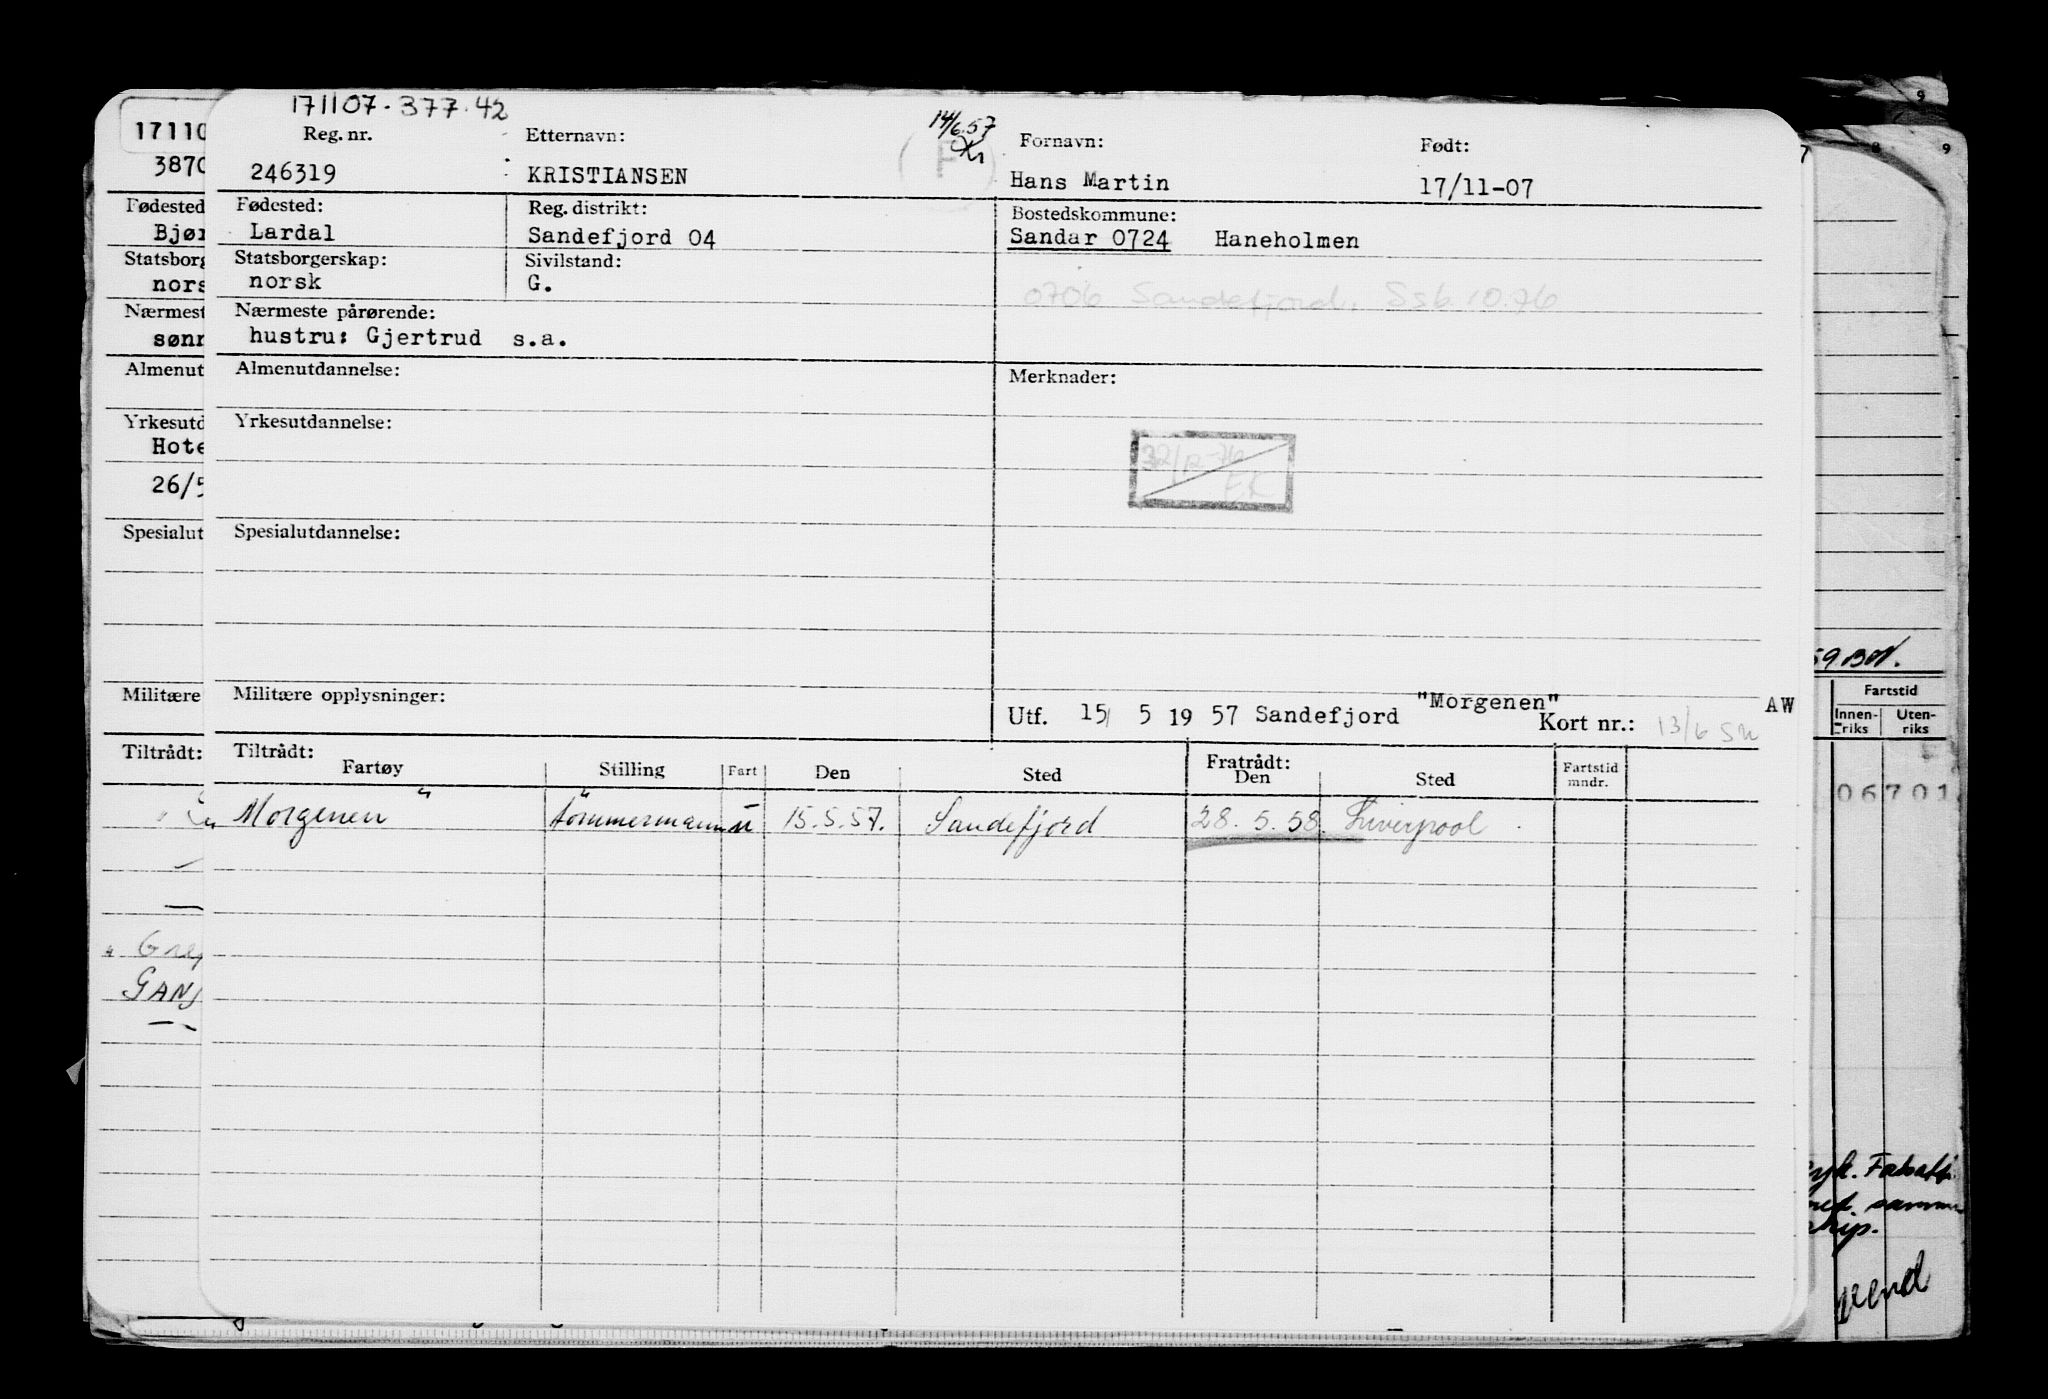 171107-377.42
Reg. nr. Etternavn: 14/6.57 Fornavn: Født:
246319 KRISTIANSEN (F) Hans Martin 17/11-07
Fødested: Reg. distrikt: Bostedskommune:
Lardal Sandefjord 04 Sandar 0724 Haneholmen
Statsborgerskap: Sivilstand:
norsk G.
0706 Sandefjord. Ssb. 10.76
Nærmeste pårørende:
hustru: Gjertrud s.a.
Almenutdannelse: Merknader:
Yrkesutdannelse:
Spesialutdannelse:
Militære opplysninger:
Utf. 15/ 5 19 57 Sandefjord "Morgenen" AW
Kort nr.: 13/6
Tiltrådt: Fratrådt:
Fartøy Stilling Fart Den Sted Den Sted Fartstid mndr.
"Morgenen" tømmermann u 15.5.57. Sandefjord 28.5.58. Liverpool
17110
3870
Fødested
Bjør
Statsborg
nors
Nærmest
sønn
Almenut
Yrkesutd
Hote
26/5
Spesialut
Militære
Tiltrådt:
GANS
9
7 8 9
59
Fartstid
Innen-riks Uten-riks
06701